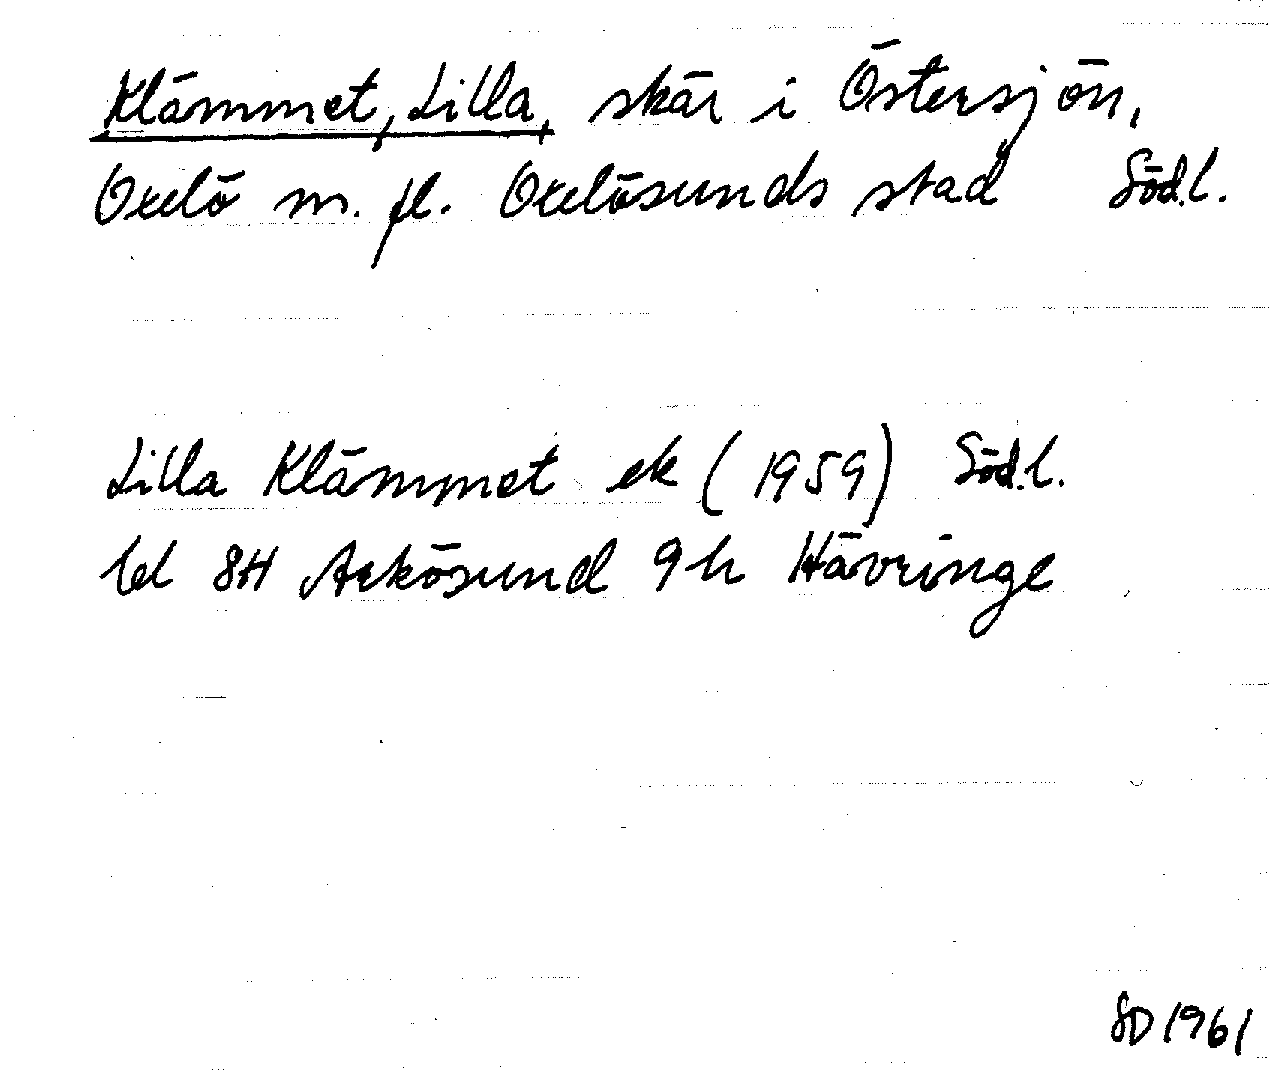 Klämmet, Lilla, skär i Östersjön,
Oxelö m. fl. Oxelösunds stad Södl.
Lilla Klämmet ek (1959) Södl.
bl 8H Arkösund 9h Hävringe
SD 1961